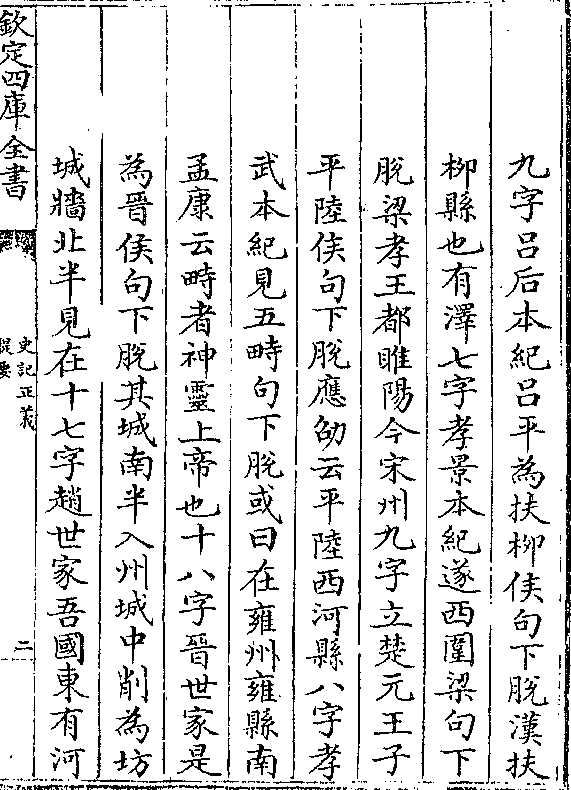 九字呂后本紀呂平為扶柳侯句下脫漢扶
柳縣也有澤七字孝景本紀遂西圍梁句下
脫梁孝王都睢陽今宋州九字立楚元王子
平陸侯句下脫應劭云平陸西河縣八字孝
武本紀見五畤句下脫或曰在雍州雍縣南
孟康云畤者神靈上帝也十八字晉世家是
為晉侯句下脫其城南半入州城中削為坊
城牆北半見在十七字趙世家吾國東有河
欽定四庫全書
史記正義
提要
二